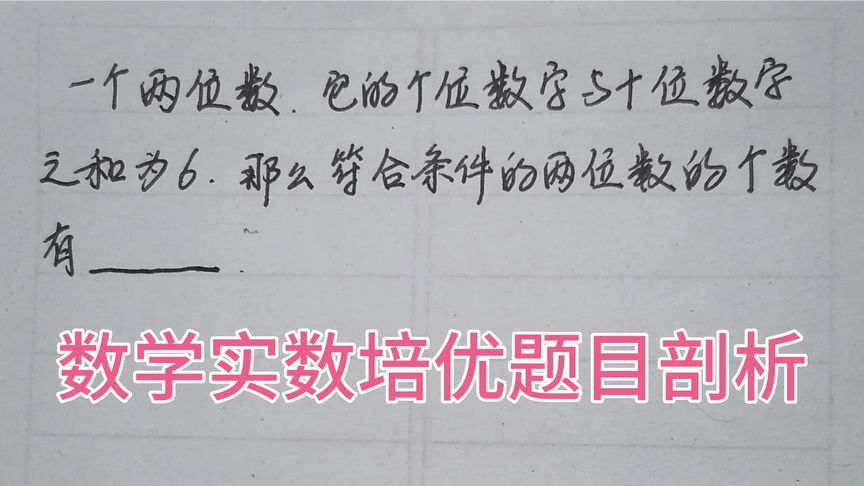 一个两位数.它的个位数字与十位数字
之和为6.那么符合条件的两位数的个数
有______.
数学实数培优题目剖析